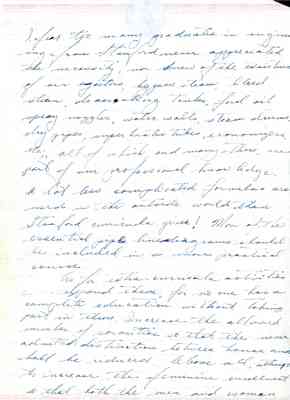 I fear too many graduates in engineer-
ing from Stanford never appreciated
the necessity, nor knew of the existence
of air ejectors, bypass steam, bleed
steam, tanks, fuel oil
spray nozzles, water walls, steam drums,
superheater tubes, economizers,
etc., all of which and many others, are
part of our professional knowledge.
A lot less complicated formulas are
used in the outside world than
Stanford give! More of the
essential should
be included in a more practical
course.
As for extra-curricula activities
I approve them, for no one has a
complete education without taking
part in them. Increase the allowed
number of sororities so that the now
admitted distinction between houses and
hall be reduced. Above all,
to increase the feminine enrollment
so that both the men and women